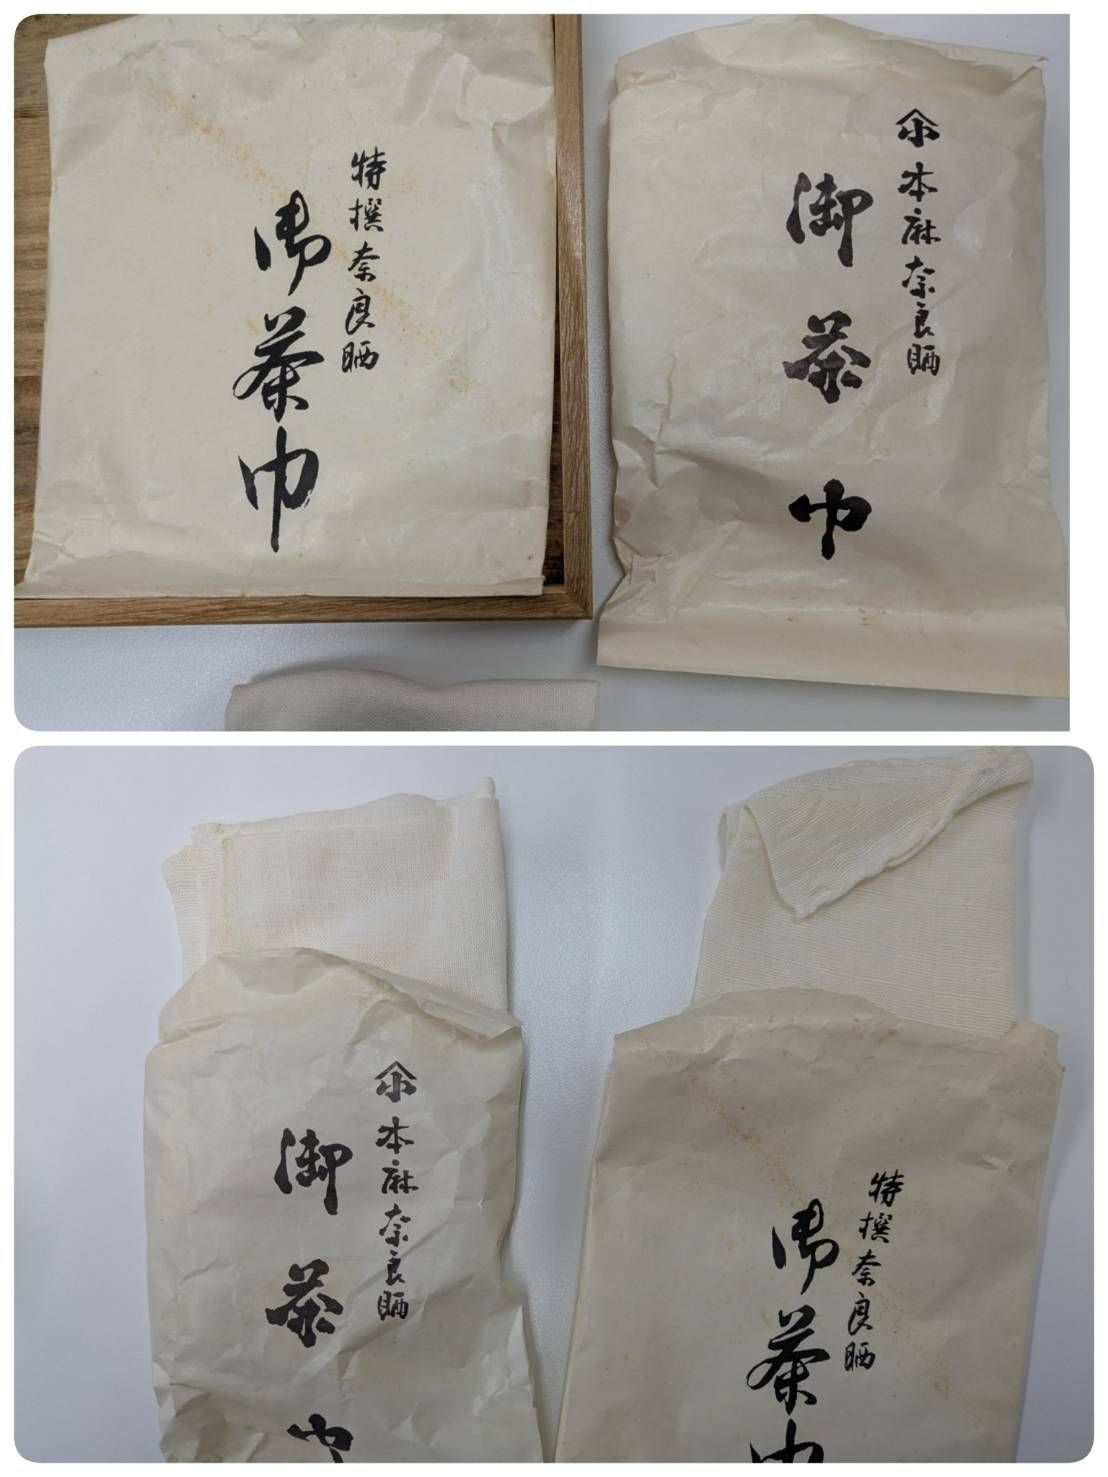 特撰奈良晒
御茶巾
本麻奈良晒
御茶巾
本麻奈良晒
御茶巾
特撰奈良晒
御茶巾